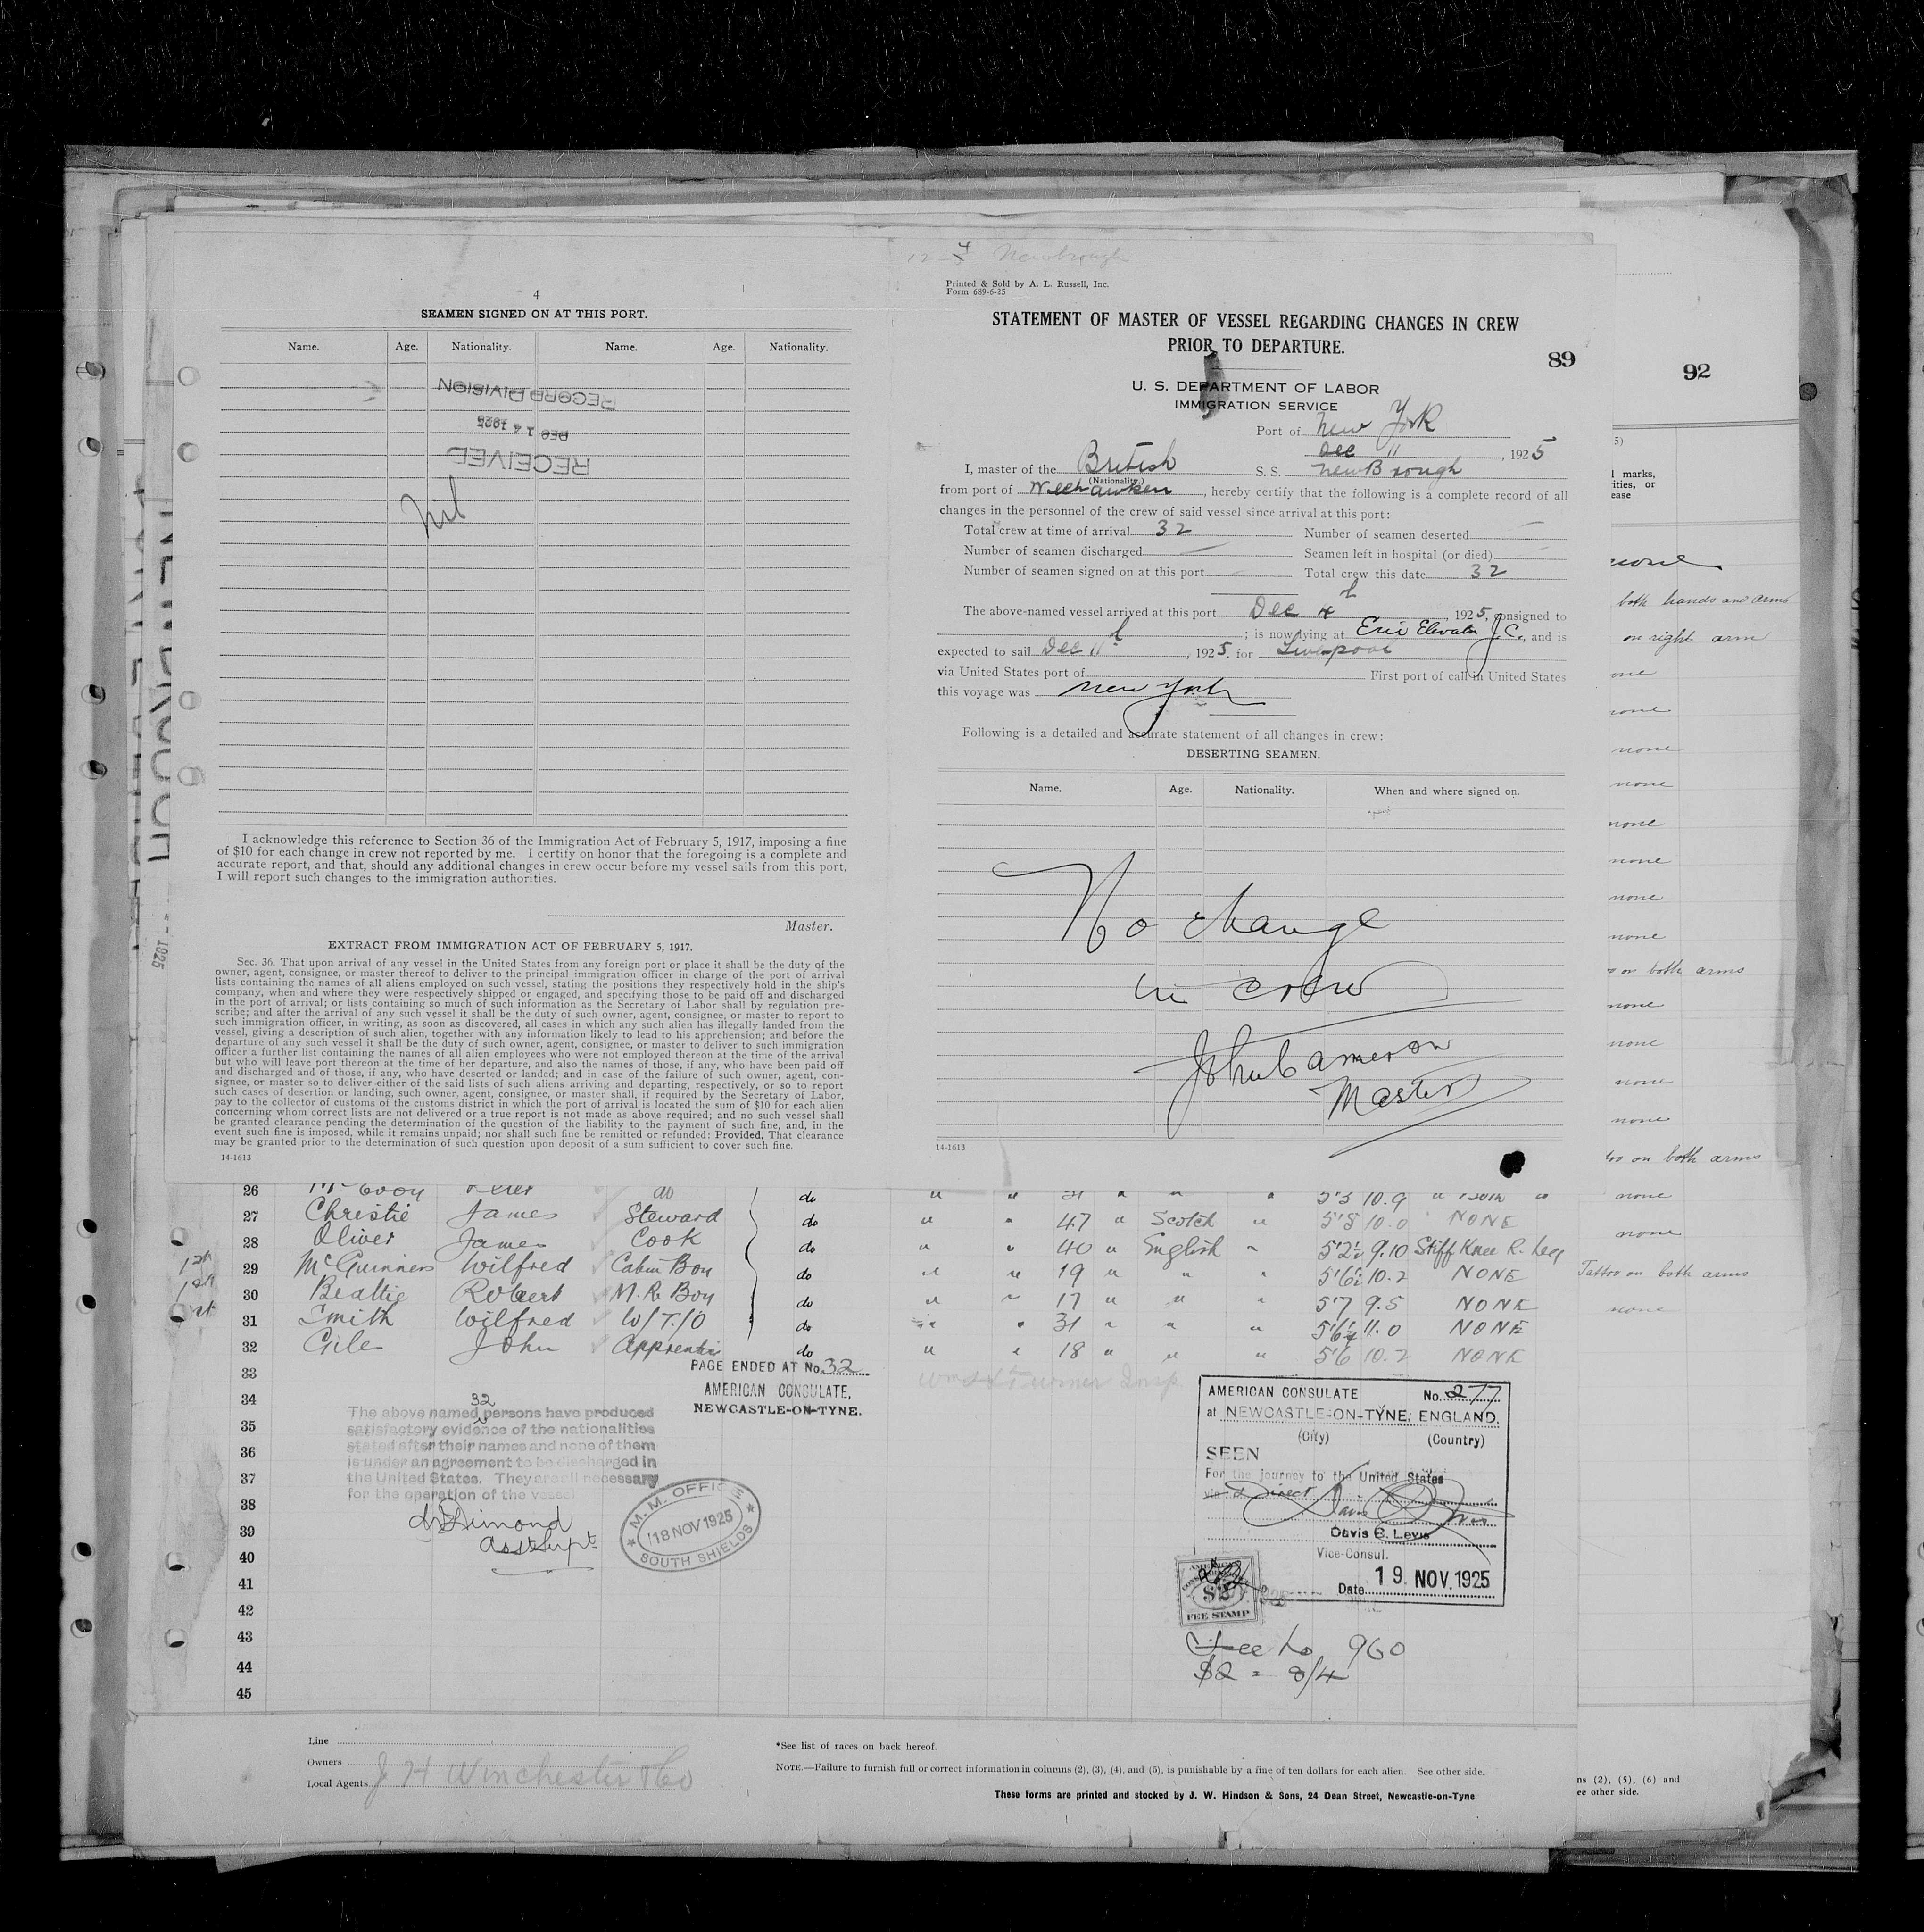 12-4 Newbrough
4
SEAMEN SIGNED ON AT THIS PORT.
Name. Age. Nationality. Name. Age. Nationality.
RECORD DIVISION
DEC 14 1925
RECEIVED
Nil
I acknowledge this reference to Section 36 of the Immigration Act of February 5, 1917, imposing a fine
of $10 for each change in crew not reported by me. I certify on honor that the foregoing is a complete and
accurate report, and that, should any additional changes in crew occur before my vessel sails from this port,
I will report such changes to the immigration authorities.
Master.
EXTRACT FROM IMMIGRATION ACT OF FEBRUARY 5, 1917.
Sec. 36. That upon arrival of any vessel in the United States from any foreign port or place it shall be the duty of the
owner, agent, consignee, or master thereof to deliver to the principal immigration officer in charge of the port of arrival
lists containing the names of all aliens employed on such vessel, stating the positions they respectively hold in the ship's
company, when and where they were respectively shipped or engaged, and specifying those to be paid off and discharged
in the port of arrival; or lists containing so much of such information as the Secretary of Labor shall by regulation pre-
scribe; and after the arrival of any such vessel it shall be the duty of such owner, agent, consignee, or master to report to
such immigration officer, in writing, as soon as discovered, all cases in which any such alien has illegally landed from the
vessel, giving a description of such alien, together with any information likely to lead to his apprehension; and before the
departure of any such vessel it shall be the duty of such owner, agent, consignee, or master to deliver to such immigration
officer a further list containing the names of all alien employees who were not employed thereon at the time of the arrival
but who will leave port thereon at the time of her departure, and also the names of those, if any, who have been paid off
and discharged and of those, if any, who have deserted or landed; and in case of the failure of such owner, agent, con-
signee, or master so to deliver either of the said lists of such aliens arriving and departing, respectively, or so to report
such cases of desertion or landing, such owner, agent, consignee, or master shall, if required by the Secretary of Labor,
pay to the collector of customs of the customs district in which the port of arrival is located the sum of $10 for each alien
concerning whom correct lists are not delivered or a true report is not made as above required; and no such vessel shall
be granted clearance pending the determination of the question of the liability to the payment of such fine, and, in the
event such fine is imposed, while it remains unpaid; nor shall such fine be remitted or refunded: Provided, That clearance
may be granted prior to the determination of such question upon deposit of a sum sufficient to cover such fine.
14-1613
Printed & Sold by A. L. Russell, Inc.
Form 689-6-25
STATEMENT OF MASTER OF VESSEL REGARDING CHANGES IN CREW
PRIOR TO DEPARTURE.
89
92
U. S. DEPARTMENT OF LABOR
IMMIGRATION SERVICE
Port of New York
Dec 11, 1925
I, master of the British S. S. NewBrough
(Nationality.)
from port of Weehawken, hereby certify that the following is a complete record of all
changes in the personnel of the crew of said vessel since arrival at this port:
Total crew at time of arrival 32 Number of seamen deserted —
Number of seamen discharged — Seamen left in hospital (or died) —
Number of seamen signed on at this port — Total crew this date 32
The above-named vessel arrived at this port Dec 4th, 1925, consigned to
; is now lying at Erie Elevator J.C., and is
expected to sail Dec 11th, 1925. for Liverpool
via United States port of First port of call in United States
this voyage was New York
Following is a detailed and accurate statement of all changes in crew:
DESERTING SEAMEN.
Name. Age. Nationality. When and where signed on.
No change
in crew
John Cameron
Master
14-1613
marks,
ities, or
ease
none
both hands and arms
on right arm
one
none
none
none
none
none
none
none
on both arms
none
none
none
none
too on both arms
none
none
Tattoo on both arms
none
26 McEvoy Peter do do " " " " " 5'5 10.9 " "
27 Christie James Steward do " " 47 " Scotch " 5'8 10.0 NONE
28 Oliver James Cook do " " 40 " English " 5'2½ 9.10 Stiff Knee R. Leg
29 McGuinness Wilfred Cabin Boy do " " 19 " " " 5'6½ 10.2 NONE
30 Beattie Robert M.R. Boy do " " 17 " " " 5'7 9.5 NONE
31 Smith Wilfred W/T/O do " " 31 " " " 5'6¼ 11.0 NONE
32 Giles John Apprentice do " " 18 " " " 5'6 10.2 NONE
33
34
35
36
37
38
39
40
41
42
43
44
45
1st
1st
1st
PAGE ENDED AT No. 32
AMERICAN CONSULATE,
NEWCASTLE-ON-TYNE.
32
The above named persons have produced
satisfactory evidence of the nationalities
stated after their names and none of them
is under an agreement to be discharged in
the United States. They are all necessary
for the operation of the vessel
Asst Supt
M.M. OFFICE
18 NOV 1925
SOUTH SHIELDS
AMERICAN CONSULATE No. 277
at NEWCASTLE-ON-TYNE, ENGLAND.
(City) (Country)
SEEN
For the journey to the United States
via Direct
Davis B. Levis
Vice-Consul.
Date 19. NOV. 1925
AMERICAN
$2
FEE STAMP
Fee No 960
$2 = 8/4
Line
Owners
Local Agents J H Winchester & Co
*See list of races on back hereof.
NOTE.—Failure to furnish full or correct information in columns (2), (3), (4), and (5), is punishable by a fine of ten dollars for each alien. See other side.
These forms are printed and stocked by J. W. Hindson & Sons, 24 Dean Street, Newcastle-on-Tyne
ns (2), (5), (6) and
ee other side.